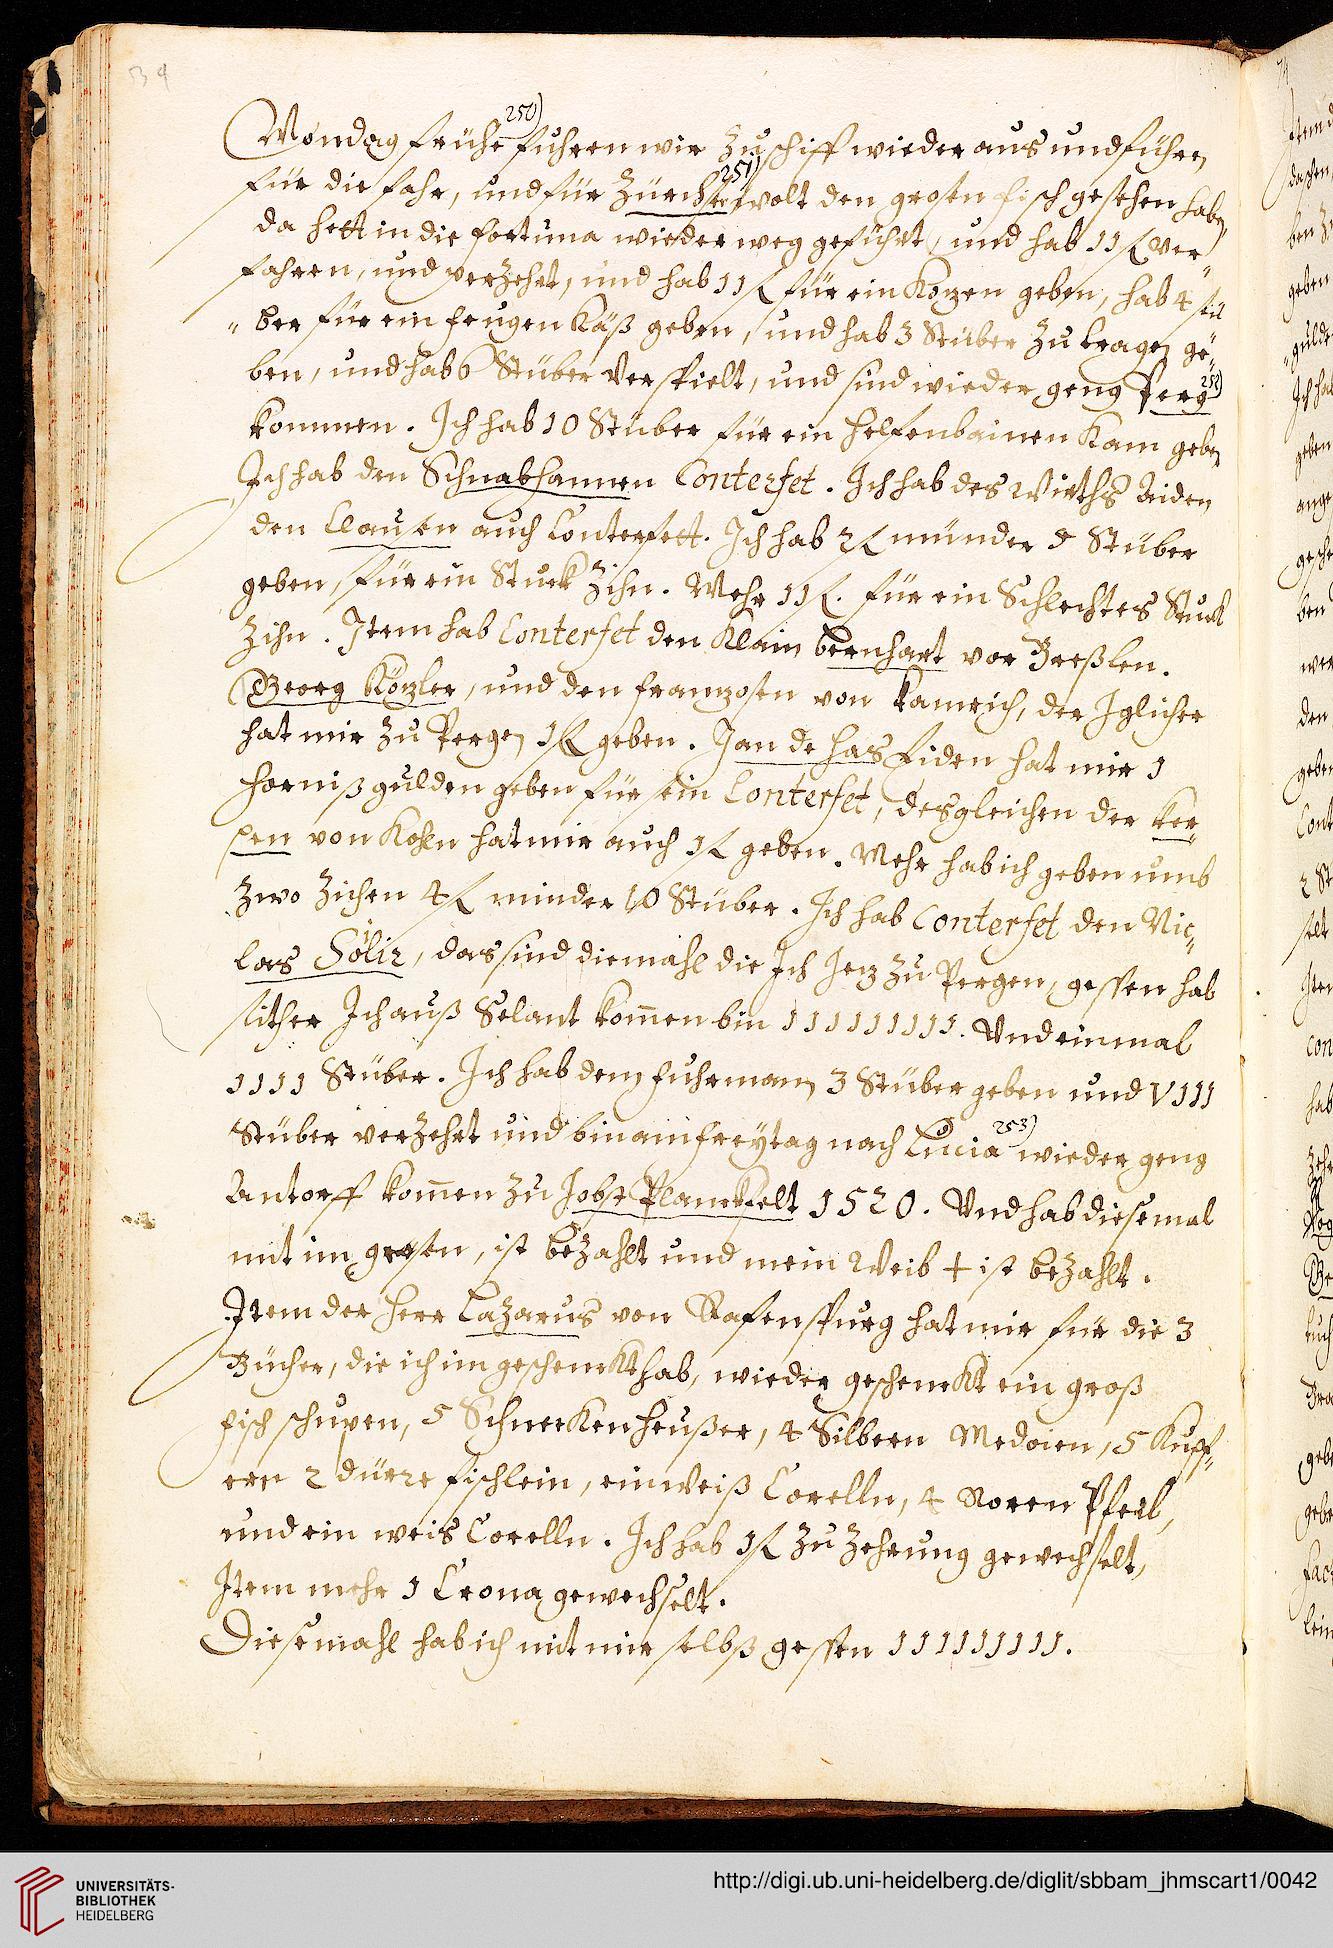 34
250)
Mondag frühe fuhren wir zu schiff wieder aus und führn
251)
für die fahr, und für Zürchse, wolt den grosen fisch gesehen haben
da hett in die fortuna wieder weg geführt, und hab 11 fl ver„
fahren, und verzehrt, und hab 11 fl für ein Kozen geben, hab 4 stü
„ber für ein feugen Käß geben, und hab 3 Stüber zu tragen ge„
ben, und hab 6 Stüber verspielt, und sind wieder geng Perg 252)
kommen. Ich hab 10 Stüber für ein helfenbainen Kam geben
Ich hab den Schnabhannen Conterfet. Ich hab des Wirths Aiden,
den Clausen auch Conterfett. Ich hab 2 fl münder 5 Stüber
geben, für ein Stuck Zihn. Mehr 11 fl. für ein Schlechtes Stuck
Zihn. Item hab Conterfet den Klain bernhart vor Breßlen.
Georg Közler, und den franzosen von Kamrich, der Iglicher
hat mir zu Pergen 1 fl geben. Jan de has Eiden hat mir 1
horniß gulden geben für sein Conterfet, desgleichen der Ker„
pen von Kohln hat mir auch 1 fl geben. Mehr hab ich geben umb
zwo Zichen 4 fl minder 10 Stüber. Ich hab Conterfet den Nic„
las Soliir, das sind die mahl die Ich Jetz zu Pergen, gessen hab
sither Ich auß Selant kom̄en bin 111111111. Und einmal
1111 Stüber. Ich hab dem fuhrmann 3 Stüber geben und VIII
253)
Stüber verzehrt und bin am freytag nach Lucia wieder geng
Antorff kom̄en zu Jobst Planckfelt 1520. Und hab diesemal
mit im gessen, ist bezahlt und mein Weib + ist bezahlt.
Item der Herr Lazarus von Rafenspurg hat mir für die 3
Bücher, die ich im geschenkt hab, wieder geschenkt ein groß
fisch schupen, 5 Schnecken heußer, 4 Silbern Medoien, 5 Kupf„
ern 2 dürre fischlein, ein Weiß Corelln, 4 Roren Pfeil,
und ein weis Corelln. Ich hab 1 fl zu zehrung gewechselt,
Item mehr 1 Crona gewechselt.
Diesemahl hab ich mit mir selbß gessen 111111111.
UNIVERSITÄTS-
BIBLIOTHEK
HEIDELBERG
http://digi.ub.uni-heidelberg.de/diglit/sbbam_jhmscart1/0042